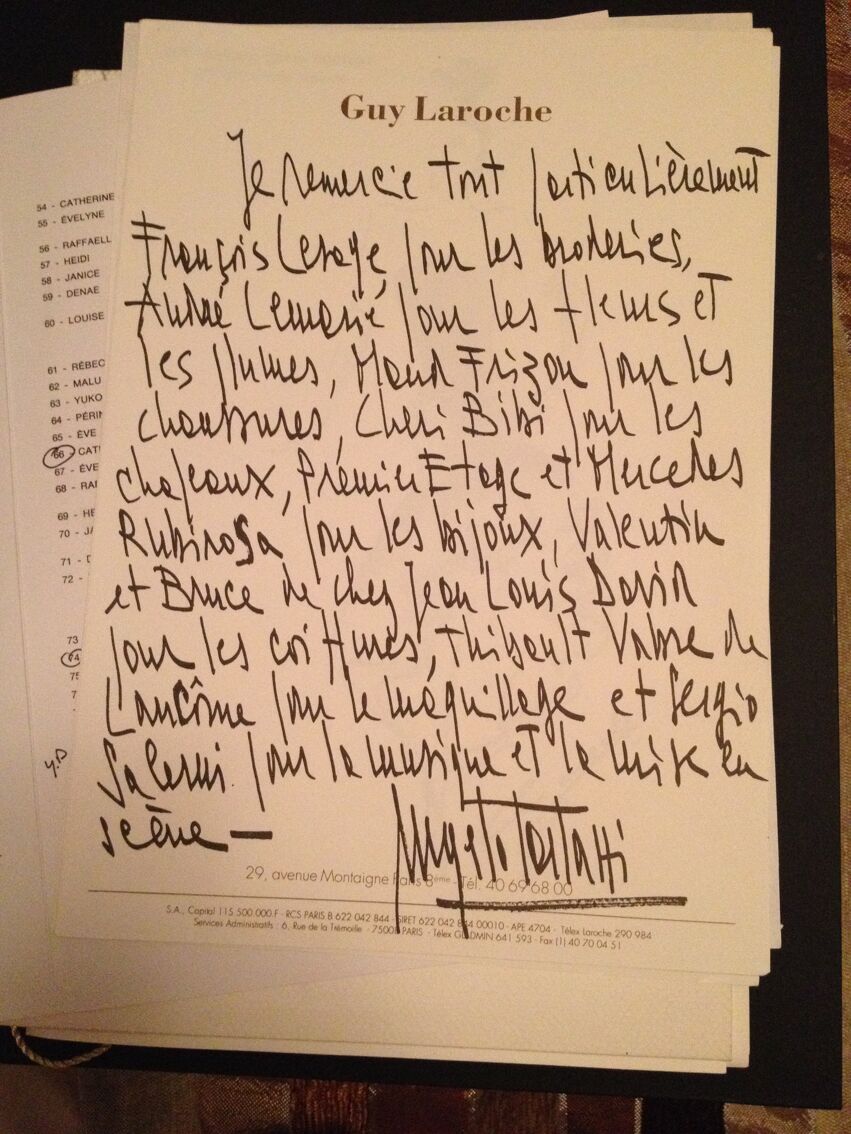 Guy Laroche
Je remercie tout particulièrement
François Lesage, pour les broderies,
André Lemarié pour les fleurs et
les plumes, Maud Frizon pour les
chaussures, Cheri Bibi pour les
chapeaux, Premier Etage et Mercedes
Rubirosa pour les bijoux, Valentin
et Bruce de chez Jean Louis David
pour les coiffures, Thibault Vabre de
Lancôme pour le maquillage et Sergio
Salerni pour la musique et la mise en
scène —
29, avenue Montaigne Paris 8ème - Tél. 40 69 68 00
S.A., Capital 115 500 000 F - RCS PARIS B 622 042 844 - SIRET 622 042 844 00010 - APE 4704 - Télex Laroche 290 984
Services Administratifs : 6, Rue de la Trémoille - 75008 PARIS - Télex GLADMIN 641 593 - Fax (1) 40 70 04 51
54 - CATHERINE
55 - ÉVELYNE
56 - RAFFAELL
57 - HEIDI
58 - JANICE
59 - DENAE
60 - LOUISE
61 - RÉBEC
62 - MALU
63 - YUKO
64 - PÉRI
65 - ÈVE
66 CAT
67 - ÉVE
68 - RA
69 - HE
70 - J
71 -
72 -
73
74